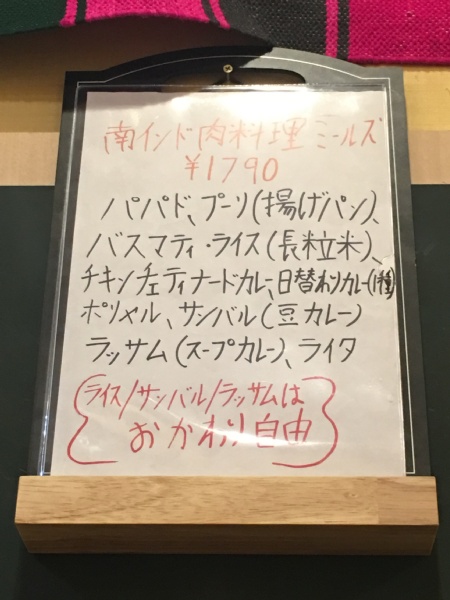 南インド肉料理ミールズ
¥1790
パパド、プーリ(揚げパン)、
バスマティ・ライス(長粒米)、
チキンチェティナードカレー、日替わりカレー(1種)
ポリヤル、サンバル(豆カレー)
ラッサム(スープカレー)、ライタ
ライス/サンバル/ラッサムは
おかわり自由